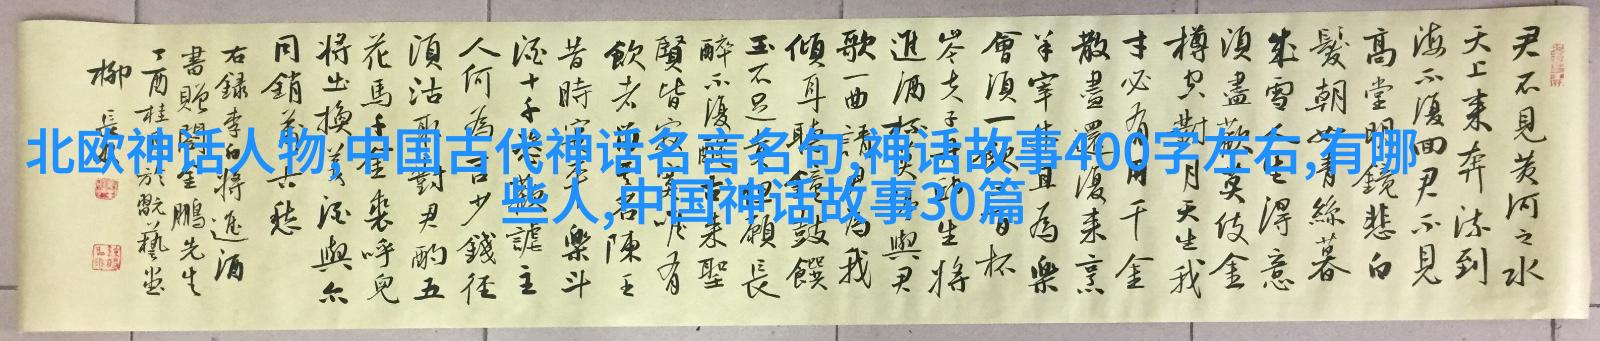 君不見黃河之水
天上来奔流到
海不復回君不見
高堂明鏡悲白
髮朝如青絲暮
成雪人生得意
須盡歡莫使金
樽空對月天生我
才必有用千金
散盡還復来烹
羊宰牛且為樂
會須一飲三百杯
岑夫子丹丘生將
進酒杯莫停與君
歌一曲請君為我
傾耳聽鐘鼓饌
玉不足貴但願長
醉不復醒古来聖
賢皆寂寞唯有
飲者留其名陳王
昔時宴平樂斗
酒十千恣歡謔主
人何為言少錢徑
須沽取對君酌五
花馬千金裘呼兒
將出換美酒與尔
同銷萬古愁
右録李白將進酒
書贈閻金鵬先生
丁酉桂月於翫藝堂
柳長
北欧神话人物,中国古代神话名言名句,神话故事400字左右,有哪
些人,中国神话故事30篇